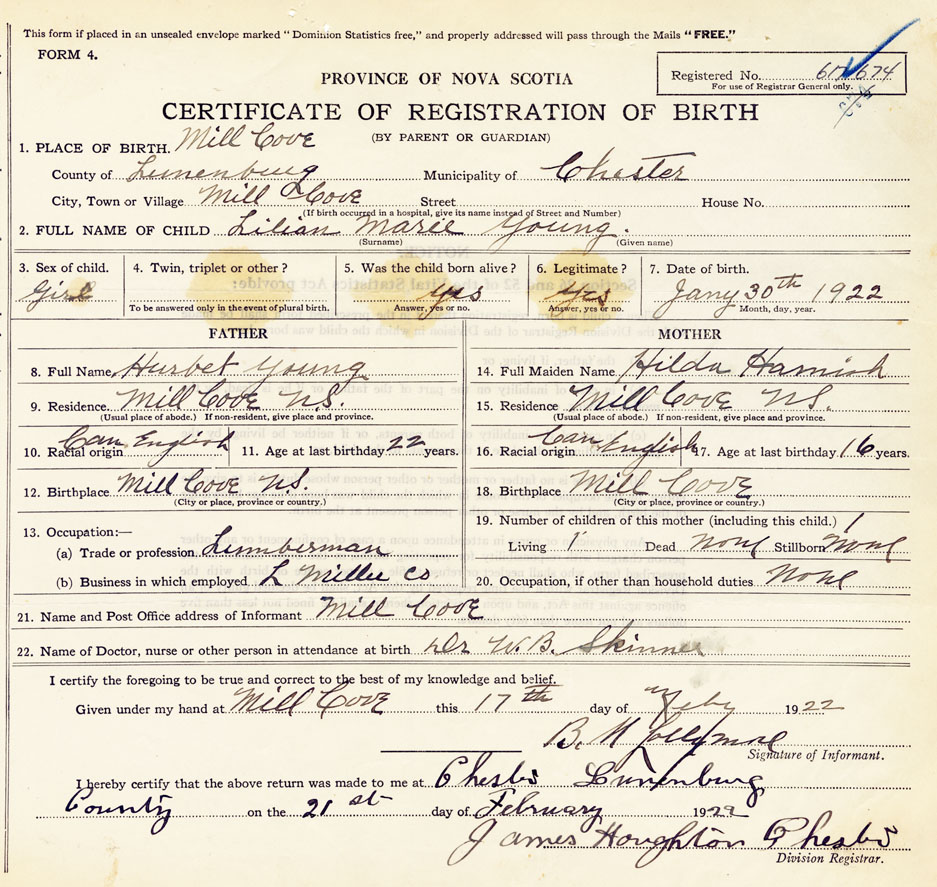 This form if placed in an unsealed envelope marked "Dominion Statistics free," and properly addressed will pass through the Mails "FREE."
FORM 4.
Registered No. 674
For use of Registrar General only.
PROVINCE OF NOVA SCOTIA
CERTIFICATE OF REGISTRATION OF BIRTH
(BY PARENT OR GUARDIAN)
1. PLACE OF BIRTH. Mill Cove
County of Lunenburg Municipality of Chester
City, Town or Village Mill Cove Street House No.
(If birth occurred in a hospital, give its name instead of Street and Number)
2. FULL NAME OF CHILD Lilian Marie Young.
(Surname) (Given name)
3. Sex of child. 4. Twin, triplet or other? 5. Was the child born alive? 6. Legitimate? 7. Date of birth.
Girl yes yes Jany 30th 1922
To be answered only in the event of plural birth. Answer, yes or no. Answer, yes or no. Month, day, year.
FATHER MOTHER
8. Full Name Hurbet Young 14. Full Maiden Name Hilda Hamish
9. Residence Mill Cove N.S. 15. Residence Mill Cove N.S.
(Usual place of abode.) If non-resident, give place and province. (Usual place of abode.) If non-resident, give place and province.
10. Racial origin Can English 11. Age at last birthday 22 years. 16. Racial origin Can English 17. Age at last birthday 16 years.
12. Birthplace Mill Cove N.S. 18. Birthplace Mill Cove
(City or place, province or country.) (City or place, province or country.)
13. Occupation:— 19. Number of children of this mother (including this child.) 1
(a) Trade or profession Lumberman Living 1 Dead None Stillborn None
(b) Business in which employed L Miller Co 20. Occupation, if other than household duties None
21. Name and Post Office address of Informant Mill Cove
22. Name of Doctor, nurse or other person in attendance at birth Dr W. B. Skinner
I certify the foregoing to be true and correct to the best of my knowledge and belief.
Given under my hand at Mill Cove this 17th day of Feby 1922
B. M
Signature of Informant.
I hereby certify that the above return was made to me at Chester Lunenburg
County on the 21st day of February 1922
James Houghton Chester
Division Registrar.